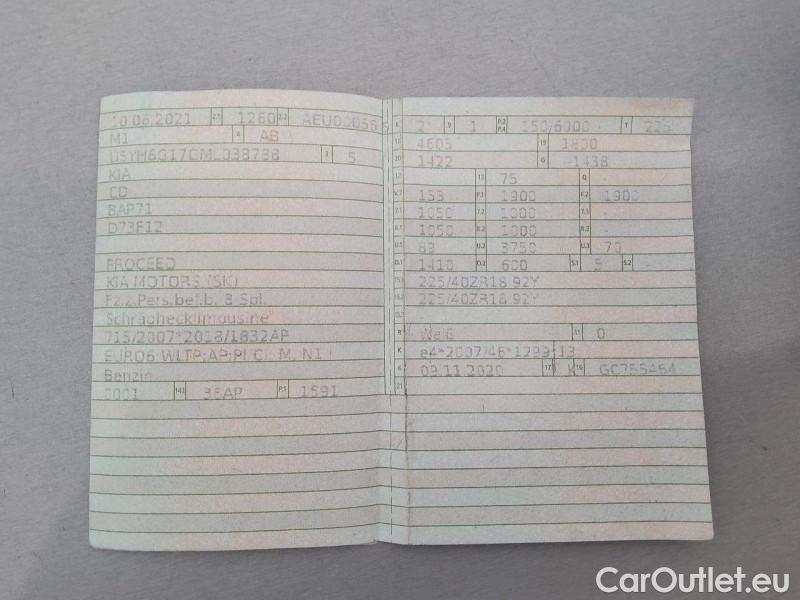 10.06.2021 2.1 1260 2.2 AEU000565
M1 4 AB
U5YH6G17GML038788 3 5
KIA
CD
BAP71
D73F12
PROCEED
KIA MOTORS (SK)
Fz.z.Pers.bef.b. 8 Spl.
Schräghecklimousine
715/2007*2018/1832AP
EURO6 WLTP;AP;PI/CI; M, N1 I
Benzin
0001 14.1 36AP P.1 1591
L 2 9 1 P.2 P.4 150/6000 T 225
18 4605 19 1800
20 1422 G -1438
12 - 13 75 Q -
V.7 153 F.1 1900 F.2 1900
7.1 1050 7.2 1000 7.3 -
8.1 1050 8.2 1000 8.3 -
U.1 83 U.2 3750 U.3 70
O.1 1410 O.2 600 S.1 5 S.2 -
15.1 225/40ZR18 92Y
15.2 225/40ZR18 92Y
R Weiß 11 0
K e4*2007/46*1299*13
6 09.11.2020 17 K 16 GC755464
21
CarOutlet.eu